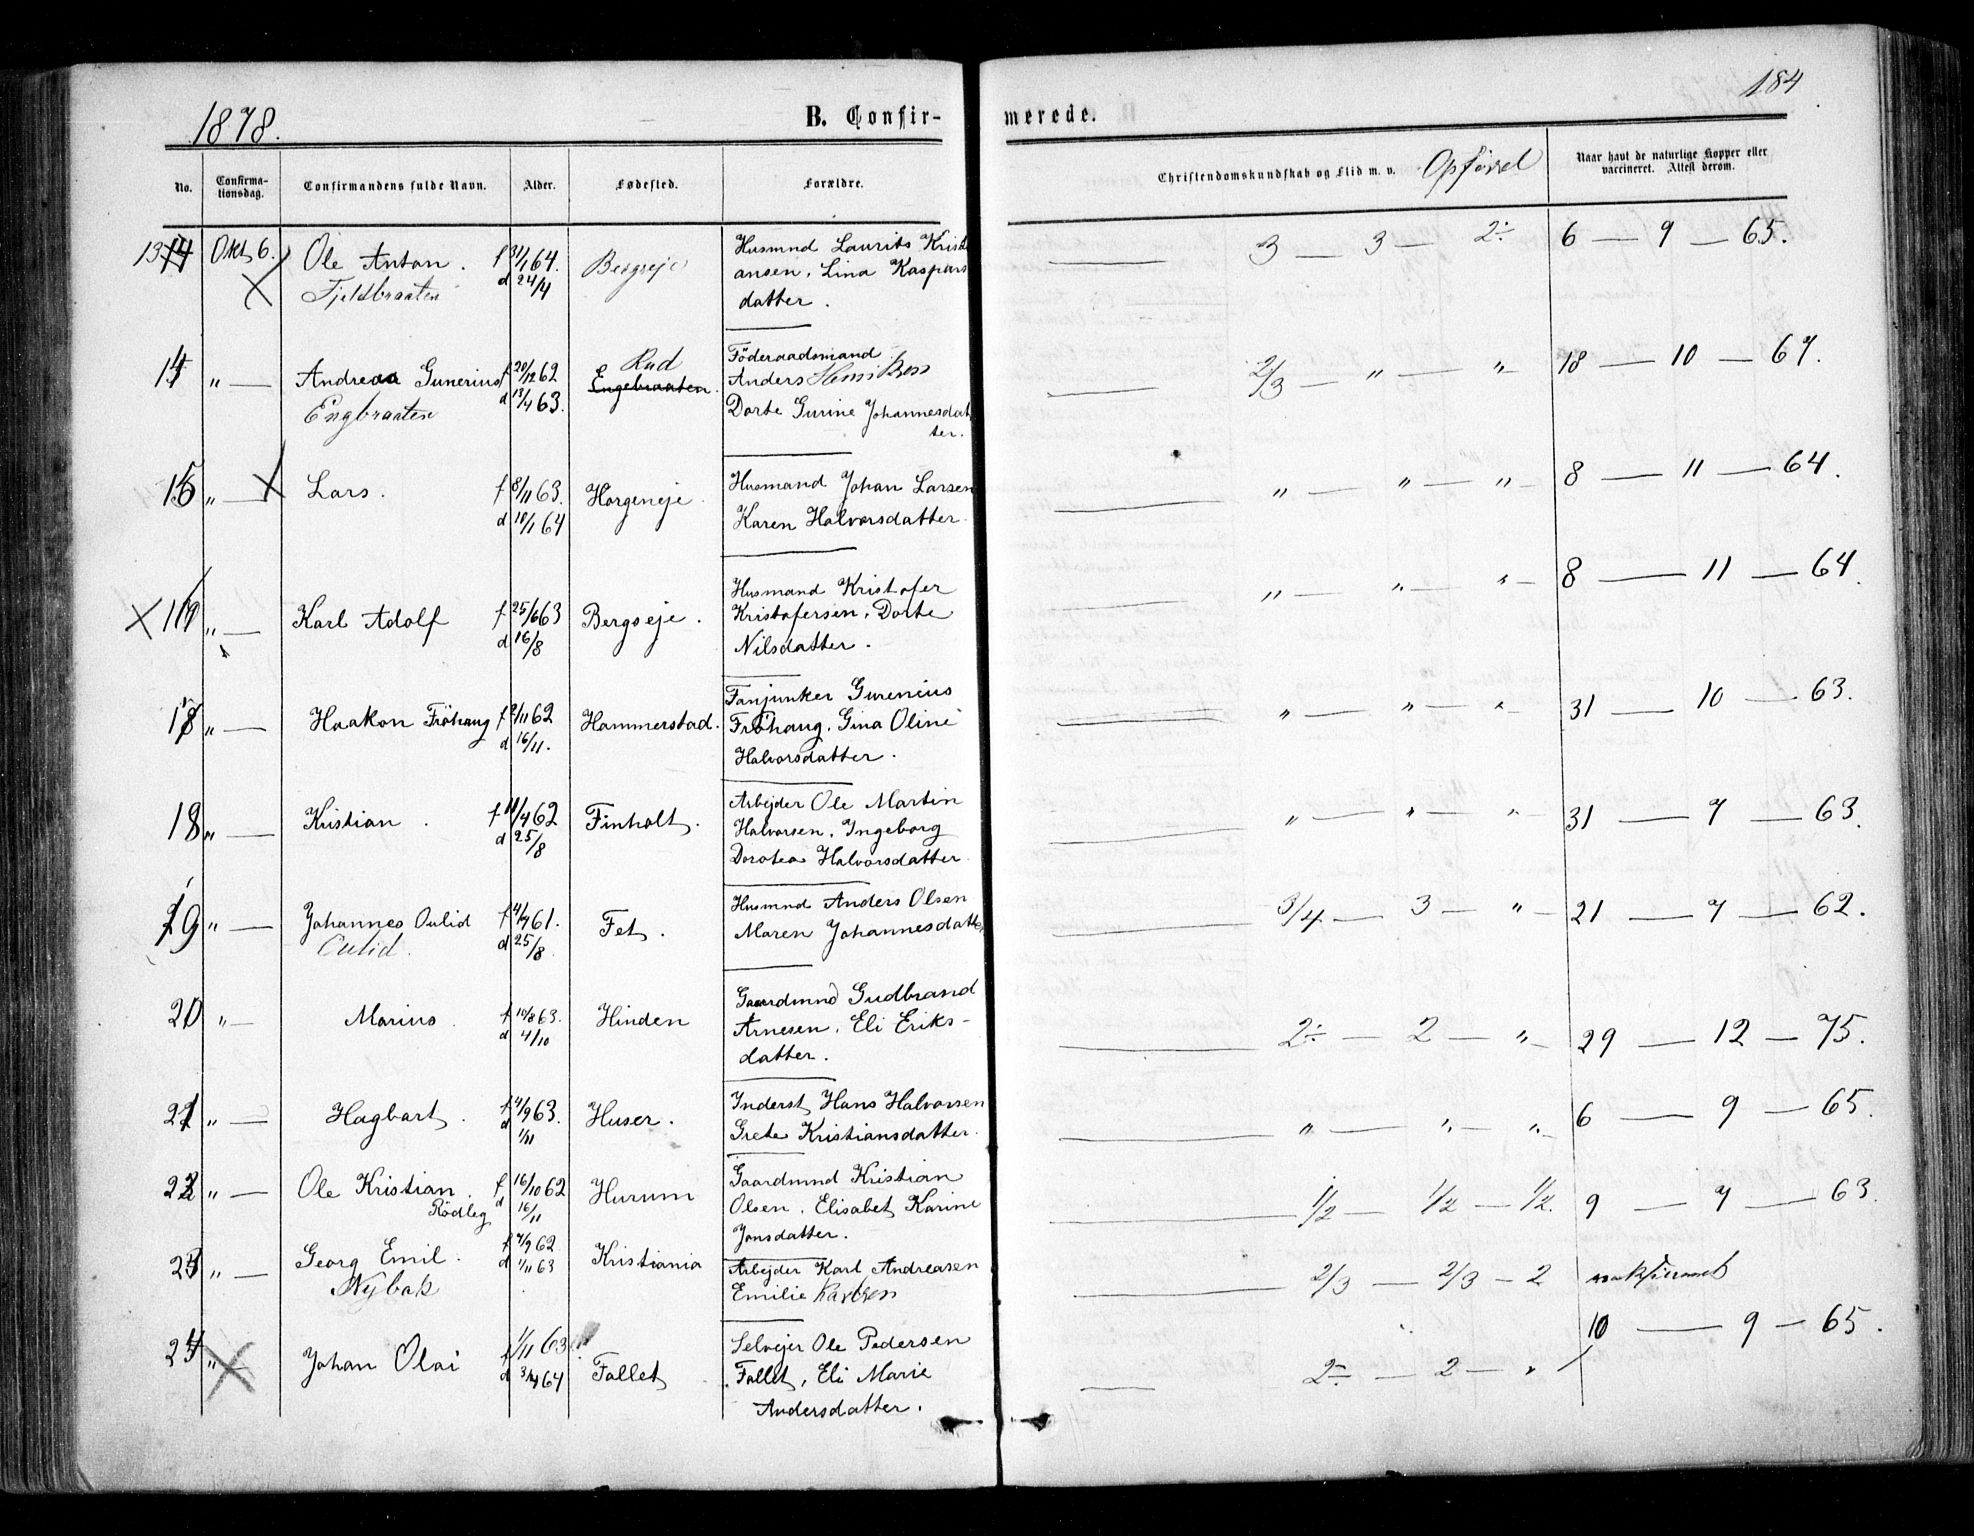 184
1878.
B. Confir-
merede.
No.
Confirma-
tionsdag.
Confirmandens fulde Navn.
Alder.
Fødested.
Forældre.
Christendomskundskab og Flid m. v. Opførsel
Naar havt de naturlige Kopper eller
vaccineret. Attest derom.
13 Okt 6. Ole Anton. f 31/1 64. Bergseje Husmnd Laurits Kristi
Fjeldbraaten d 24/4 ansen, Lina Kaspars
datter.
3 — 3 — 2÷ 6 — 9 — 65.
14 " — Andreas Gunerius f 20/12 62 Rud Föderaadsmand
Engebraaten. Anders Henriksen
Engbraaten d 13/4 63. Dorte Gurine Johannesdat
ter.
2/3 — " — " 18 — 10 — 67.
15 " — Lars. f 8/11 63. Horgeneje. Husmand Johan Larsen
d 10/1 64 Karen Halvorsdatter.
" — " — " — 8 — 11 — 64.
16 " — Karl Adolf f 25/6 63 Bergseje. Husmand Kristofer
d 16/8 Kristofersen, Dorte
Nilsdatter.
" — " — " — 8 — 11 — 64.
17 " — Haakon Fröhaug f 2/11 62 Hammerstad. Fanjunker Gurenius
d 16/11. Fröhaug, Gina Oline
Halvorsdatter.
" — " — " 31 — 10 — 63.
18 " — Kristian. f 11/4 62 Finholt. Arbejder Ole Martin
d 25/8 Halvorsen, Ingeborg
Dorotea Halvorsdatter.
" — " — " — 31 — 7 — 63.
19 " — Johannes Oulid f 4/7 61. Fet. Husmnd Anders Olsen
Oulid. d 25/8 Maren Johannesdatter
3/4 — 3 — " — 21 — 7 — 62.
20 " — Marius. f 10/8 63. Hinden Gaardmnd Gudbrand
d 4/10 Arnesen, Eli Eriks-
datter.
2÷ — 2 — " — 29 — 12 — 75.
21 " — Hagbart. f 4/9 63. Huser. Inderst Hans Halvorsen
d 1/11 Grete Kristiansdatter.
" — " — " — 6 — 9 — 65.
22 " — Ole Kristian. f 16/10 62 Hurum Gaardmnd Kristian
Rödleg d 16/11 Olsen, Elisabet Karine
Jonsdatter.
1/2 — 1/2 — 1/2. 9 — 7 — 63.
23 " — Georg Emil. f 7/9 62 Kristiania Arbejder Karl Andreasen
Nybak d 1/11 63 Emilie Karlsen
2/3 — 2/3 — 2
24 " — Johan Olai f 1/11 63 Fallet Selvejer Ole Pedersen
d 3/4 64 Fallet, Eli Marie
Andersdatter.
2÷ — 2 — " 10 — 9 — 65.